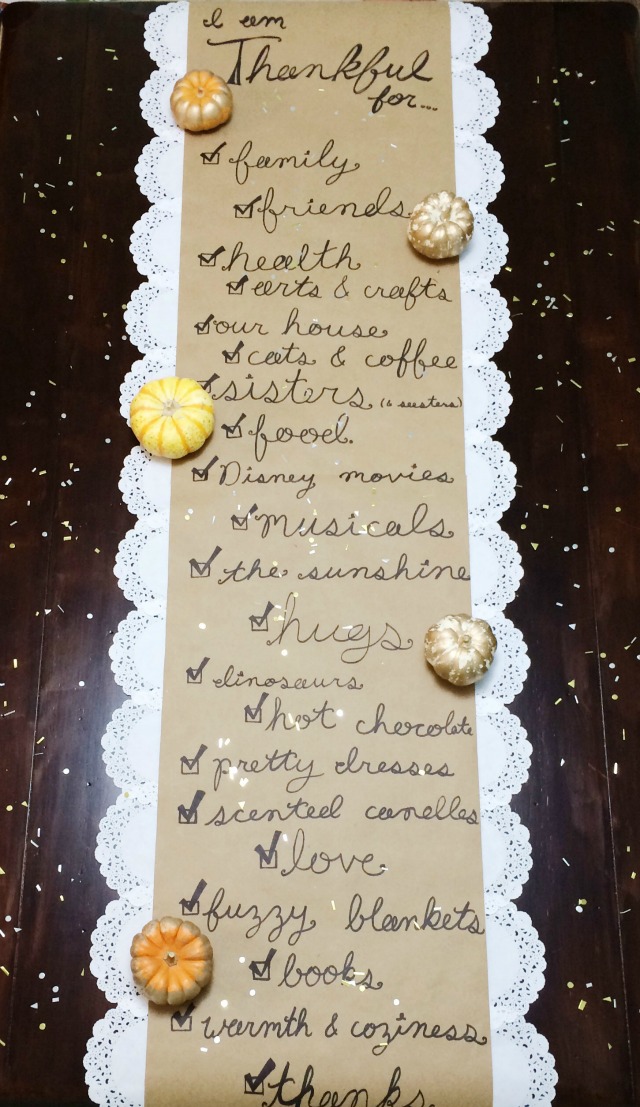 I am
Thankful
for...
family
friends
health
arts & crafts
our house
cats & coffee
sisters (& seesters)
food
Disney movies
musicals
the sunshine
hugs
dinosaurs
hot chocolate
pretty dresses
scented candles
love
fuzzy blankets
books
warmth & coziness
thanks